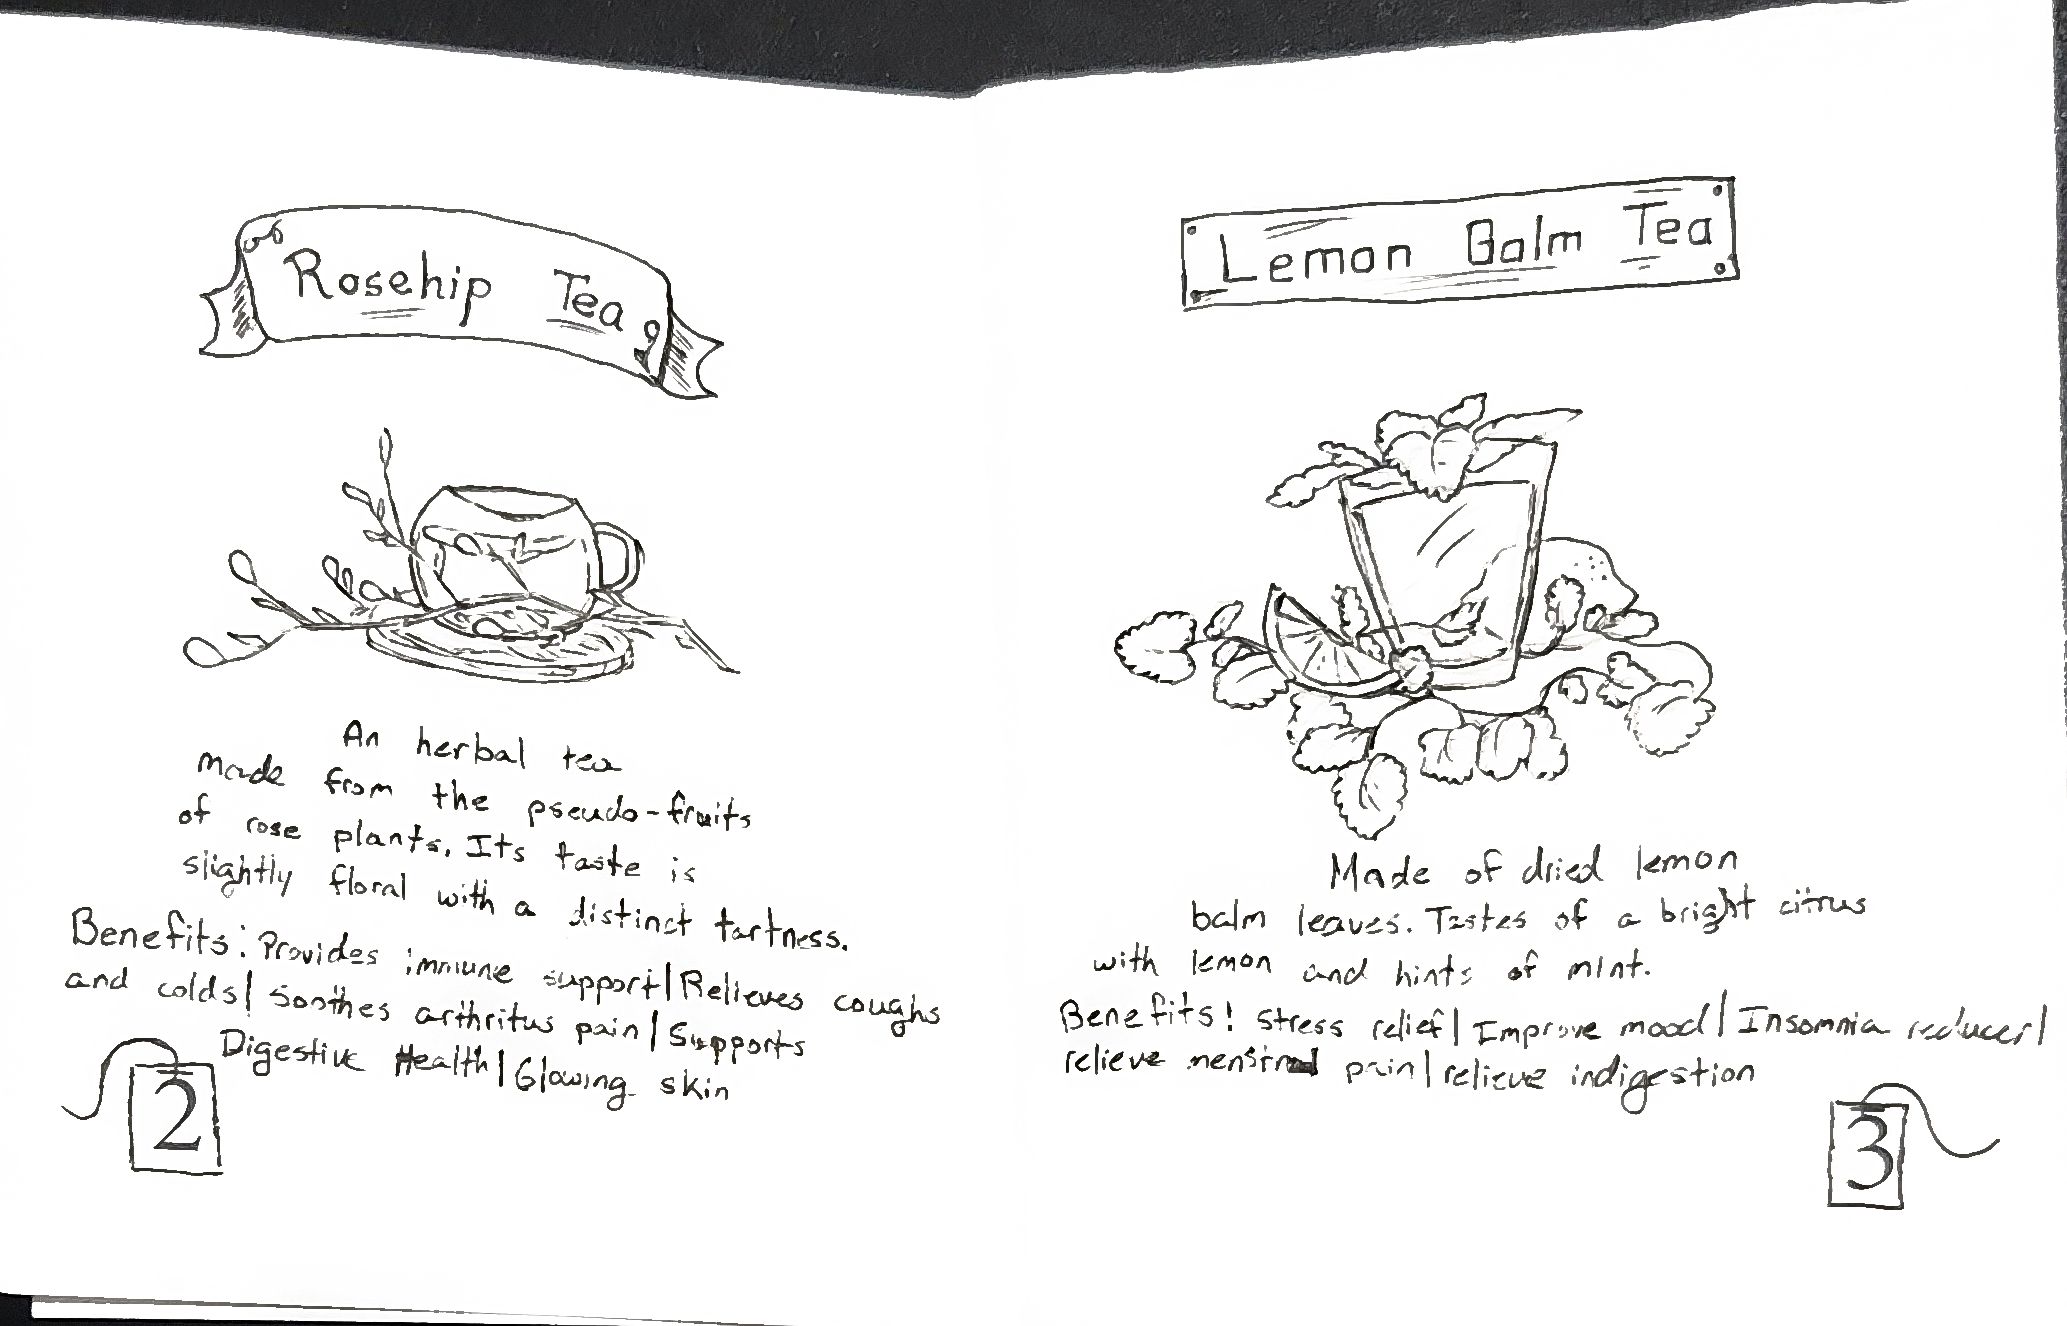 Rosehip Tea
An herbal tea
made from the pseudo-fruits
of rose plants. Its taste is
slightly floral with a distinct tartness.
Benefits: Provides immune support | Relieves coughs
and colds | Soothes arthritus pain | Supports
Digestive Health | Glowing skin
2
Lemon Balm Tea
Made of dried lemon
balm leaves. Tastes of a bright citrus
with lemon and hints of mint.
Benefits! Stress relief | Improve mood | Insomnia reducer |
relieve pain | relieve indigestion
3